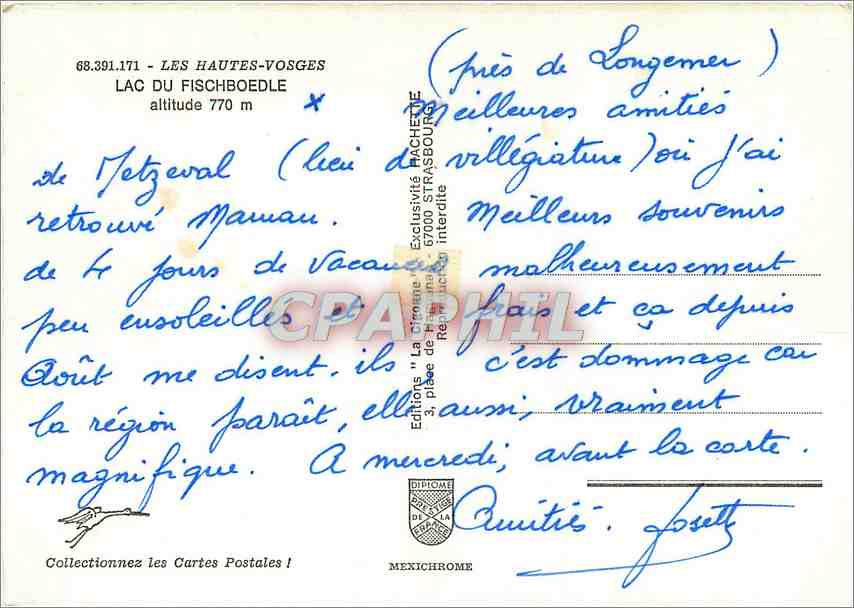 68.391.171 - LES HAUTES-VOSGES
LAC DU FISCHBOEDLE
altitude 770 m
x
(près de Longemer)
Meilleures amitiés
de Metzeval (lieu de villégiature) où j'ai
retrouvé Maman. Meilleurs souvenirs
de 4 jours de vacances malheureusement
peu ensoleillés et frais et ça depuis
Août me disent-ils, c'est dommage car
la région paraît, elle aussi, vraiment
magnifique. A mercredi, avant la carte.
Amitiés. Josette
Editions "La Cigogne" Exclusivité HACHETTE
3, place de Haguenau - 67000 STRASBOURG
Reproduction interdite
CPAPHIL
DIPLOME
PRESTIGE
DE LA
FRANCE
Collectionnez les Cartes Postales !
MEXICHROME